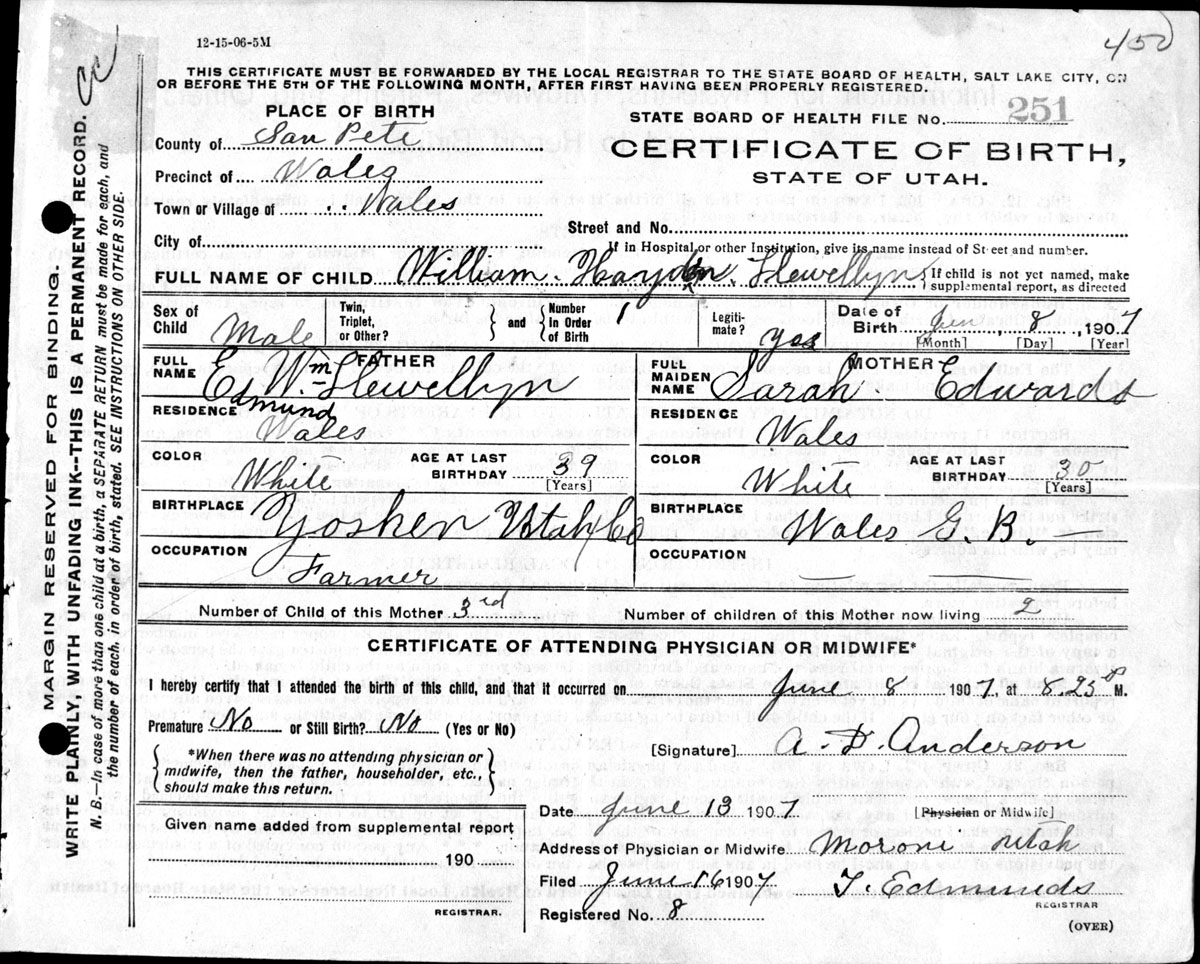 12-15-06-5M
450
THIS CERTIFICATE MUST BE FORWARDED BY THE LOCAL REGISTRAR TO THE STATE BOARD OF HEALTH, SALT LAKE CITY, ON
OR BEFORE THE 5TH OF THE FOLLOWING MONTH, AFTER FIRST HAVING BEEN PROPERLY REGISTERED.
PLACE OF BIRTH
STATE BOARD OF HEALTH FILE No. 251
County of San Pete
CERTIFICATE OF BIRTH,
STATE OF UTAH.
Precinct of Wales
Town or Village of Wales
Street and No.
City of
If in Hospital or other Institution, give its name instead of Street and number.
FULL NAME OF CHILD William Llewellyn { If child is not yet named, make
supplemental report, as directed
Sex of Child Male
Twin, Triplet, or Other? } and { Number in Order of Birth 1
Legiti- mate? yes
Date of Birth June 8 1907
[Month] [Day] [Year]
FATHER
FULL NAME Ed Wm Llewellyn
Edmund
RESIDENCE Wales
COLOR White AGE AT LAST BIRTHDAY 39 [Years]
BIRTHPLACE Goshen Utah Co
OCCUPATION Farmer
MOTHER
FULL MAIDEN NAME Sarah Edwards
RESIDENCE Wales
COLOR White AGE AT LAST BIRTHDAY 30 [Years]
BIRTHPLACE Wales G. B.
OCCUPATION
Number of Child of this Mother 3rd Number of children of this Mother now living 2
CERTIFICATE OF ATTENDING PHYSICIAN OR MIDWIFE*
I hereby certify that I attended the birth of this child, and that it occurred on June 8 1907, at 8.25 P M.
Premature No or Still Birth? No (Yes or No)
[Signature] A. D. Anderson
{ *When there was no attending physician or
midwife, then the father, householder, etc.,
should make this return. }
Date June 13 1907 [Physician or Midwife]
Given name added from supplemental report
190
REGISTRAR.
Address of Physician or Midwife Moroni Utah
Filed June 16 1907 T. Edmunds
REGISTRAR
Registered No. 8
(OVER)
MARGIN RESERVED FOR BINDING.
WRITE PLAINLY, WITH UNFADING INK--THIS IS A PERMANENT RECORD.
N. B.—In case of more than one child at a birth, a SEPARATE RETURN must be made for each, and
the number of each, in order of birth, stated. SEE INSTRUCTIONS ON OTHER SIDE.